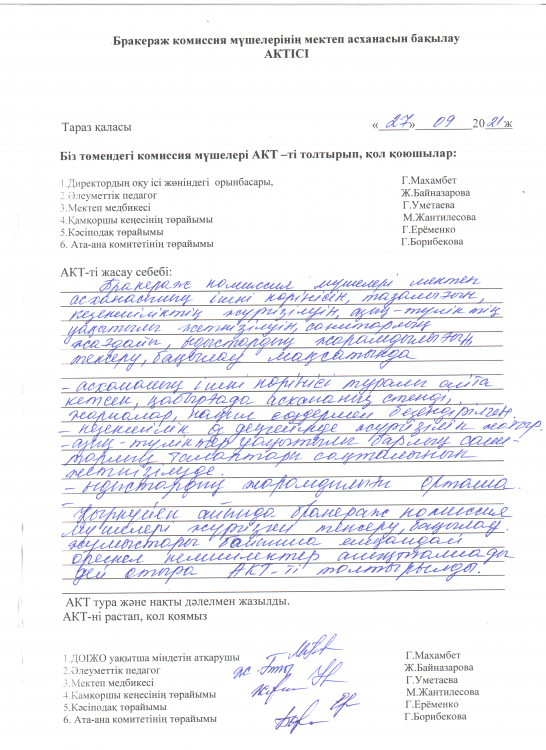 Бракераж комиссия мүшелерінің мектеп асханасын бақылау
АКТІСІ
Тараз қаласы «27» 09 2021ж
Біз төмендегі комиссия мүшелері АКТ –ті толтырып, қол қоюшылар:
1.Директордың оқу ісі жөніндегі орынбасары, Г.Махамбет
2.Әлеуметтік педагог Ж.Байназарова
3.Мектеп медбикесі Г.Уметаева
4.Қамқоршы кеңесінің төрайымы М.Жантилесова
5.Кәсіподақ төрайымы Г.Ерёменко
6. Ата-ана комитетінің төрайымы Г.Борибекова
АКТ-ті жасау себебі:
Бракераж комиссия мүшелері мектеп
асханасының ішкі көрінісін, тазалығын,
іскеншіліктің жүргізілуін, азық-түліктің
уақытылы жеткізілуін, санитарлық
жағдайын, ыдыстардың жарамдылығын
тексеру, бақылау мақсатында
- асхананың ішкі көрінісі туралы айта
кетсек, қабырғада асхананың стенді,
жарналар, нақыл сөздермен безендірілген.
- өз деңгейінде жүргізіліп жатыр.
- азық-түліктер уақытылы барлық сани-
тарлық талаптары сақталынып
жеткізілуде.
- ыдыстардың жарамдылығы орташа.
Қыркүйек айында бракераж комиссия
мүшелері жүргізген тексеру, бақылау
жұмыстары бойынша ешқандай
өрескел кемшіліктер анықталмады
дей отыра АКТ-ті толтырылды.
АКТ тура және нақты дәлелмен жазылды.
АКТ-ні растап, қол қоямыз
1.ДОІЖО уақытша міндетін атқарушы Г.Махамбет
2.Әлеуметтік педагог Ж.Байназарова
3.Мектеп медбикесі Г.Уметаева
4.Қамқоршы кеңесінің төрайымы М.Жантилесова
5.Кәсіподақ төрайымы Г.Ерёменко
6. Ата-ана комитетінің төрайымы Г.Борибекова